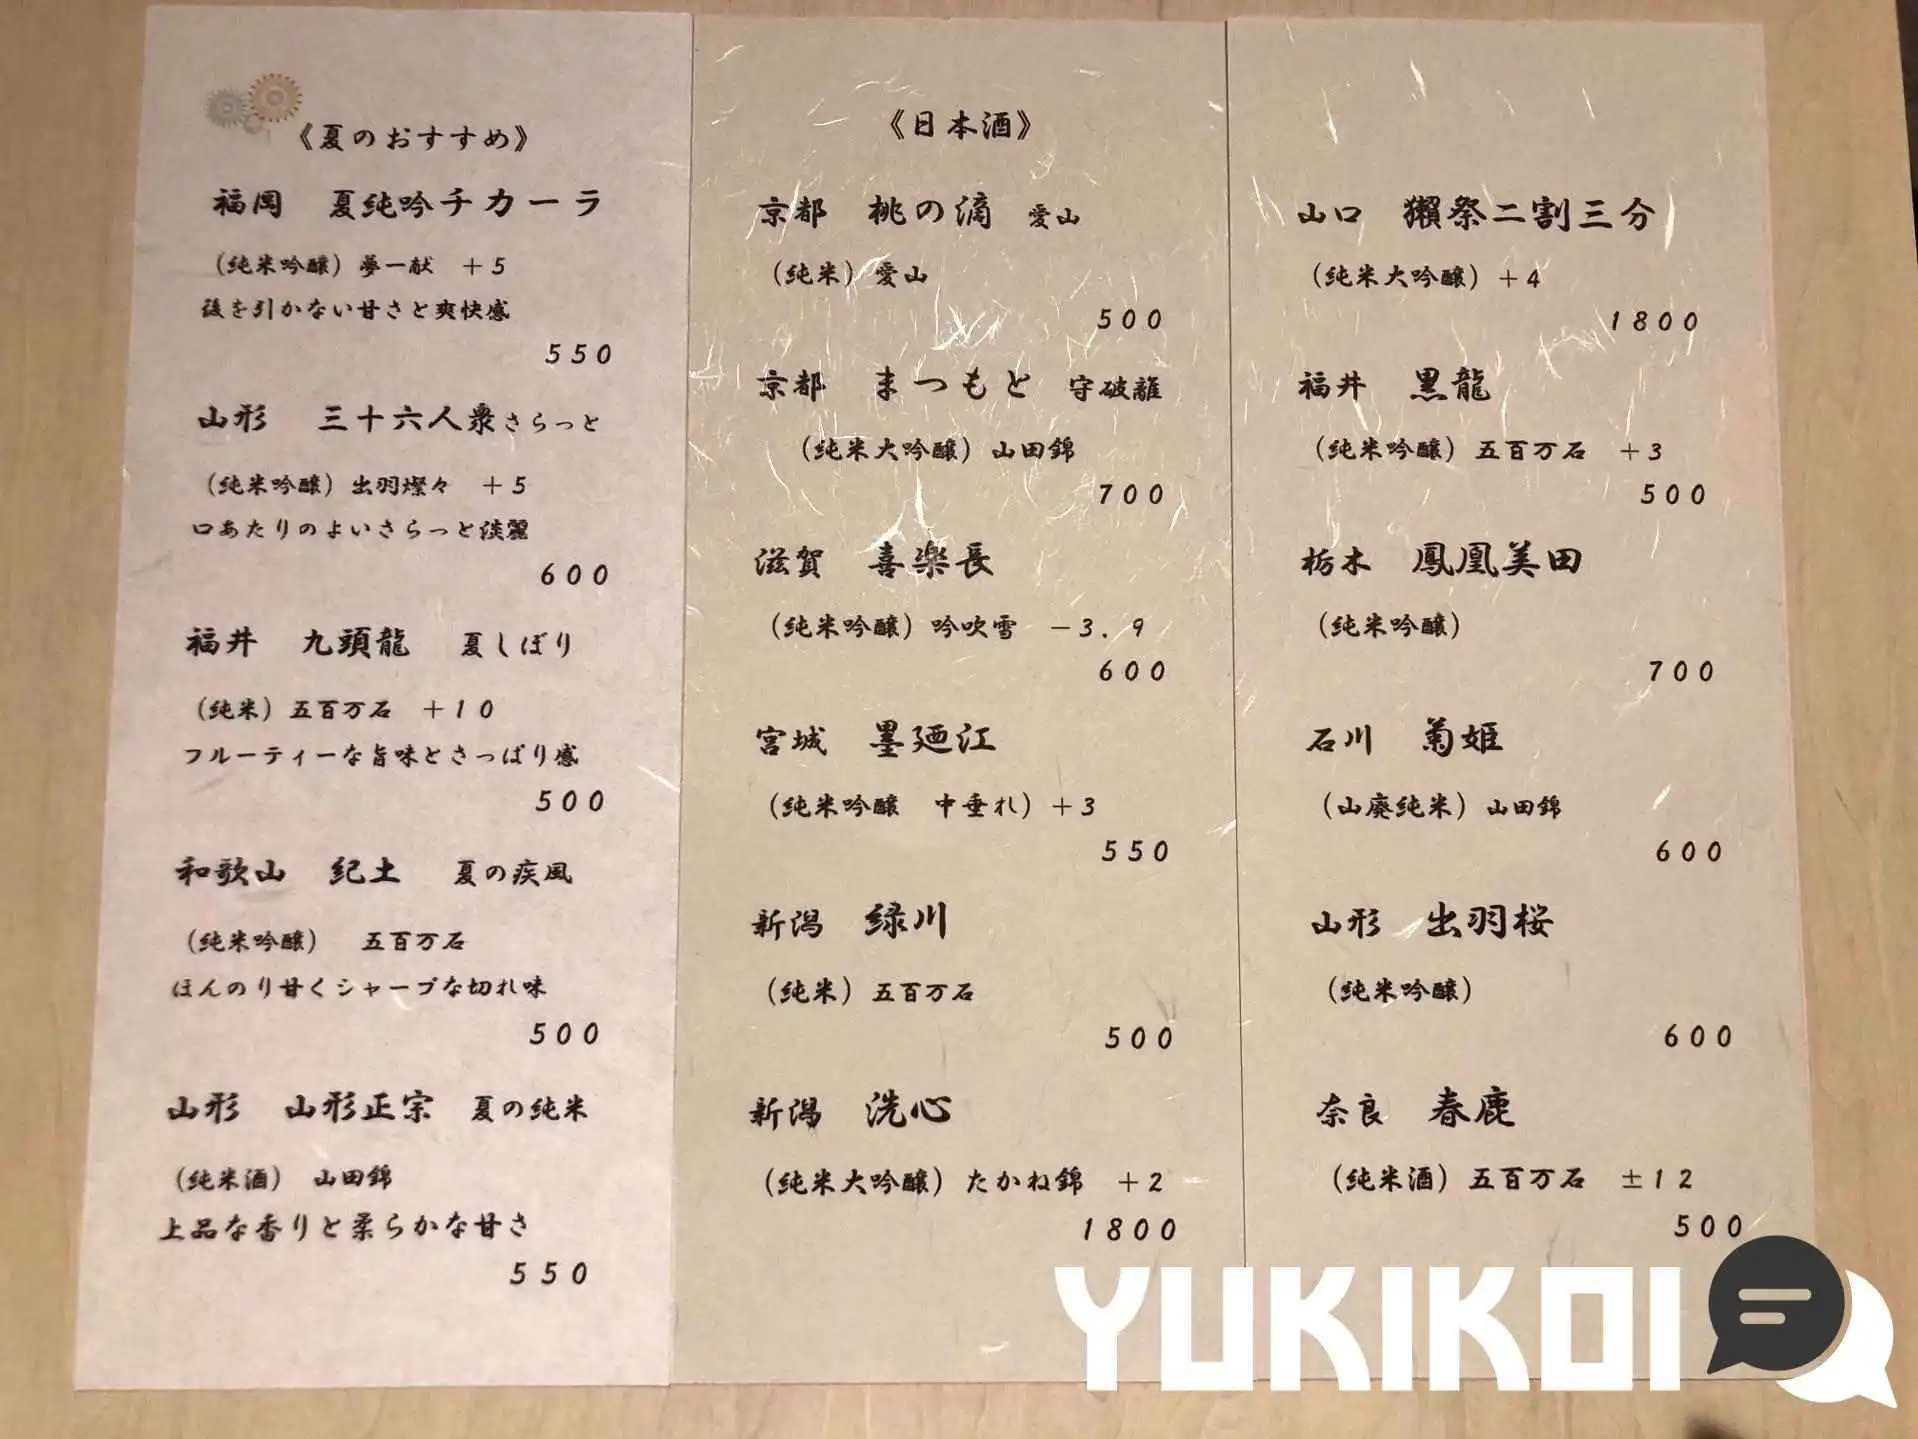 《夏のおすすめ》
福岡　夏純吟チカーラ
（純米吟醸）夢一献　＋5
後を引かない甘さと爽快感
550
山形　三十六人衆さらっと
（純米吟醸）出羽燦々　＋5
口あたりのよいさらっと淡麗
600
福井　九頭龍　夏しぼり
（純米）五百万石　＋10
フルーティーな旨味とさっぱり感
500
和歌山　紀土　夏の疾風
（純米吟醸）　五百万石
ほんのり甘くシャープな切れ味
500
山形　山形正宗　夏の純米
（純米酒）　山田錦
上品な香りと柔らかな甘さ
550
《日本酒》
京都　桃の滴　愛山
（純米）愛山
500
京都　まつもと　守破離
（純米大吟醸）山田錦
700
滋賀　喜楽長
（純米吟醸）吟吹雪　－3.9
600
宮城　墨廼江
（純米吟醸　中垂れ）＋3
550
新潟　緑川
（純米）五百万石
500
新潟　洗心
（純米大吟醸）たかね錦　＋2
1800
山口　獺祭二割三分
（純米大吟醸）＋4
1800
福井　黒龍
（純米吟醸）五百万石　＋3
500
栃木　鳳凰美田
（純米吟醸）
700
石川　菊姫
（山廃純米）山田錦
600
山形　出羽桜
（純米吟醸）
600
奈良　春鹿
（純米酒）五百万石　±12
500
YUKIKOI